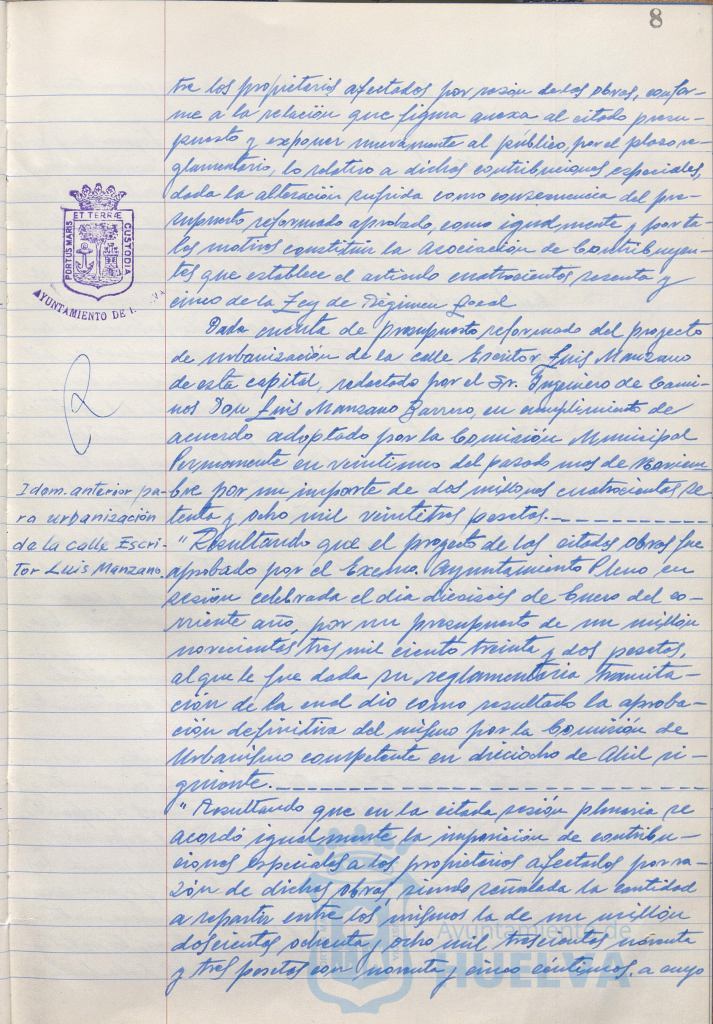 8
tre los propietarios afectados por razón de las obras, confor-
me a la relación que figura anexa al citado presu-
puesto y exponer nuevamente al público, por el plazo re-
glamentario, lo relativo a dichas contribuciones especiales,
dada la alteración sufrida como consecuencia del pre-
supuesto reformado aprobado, como igualmente y por ta-
les motivos constituir la Asociación de Contribuyen-
tes que establece el artículo cuatrocientos sesenta y
cinco de la Ley de Régimen Local
Dada cuenta de presupuesto reformado del proyecto
de urbanización de la calle Escritor Luis Manzano
de esta capital, redactado por el Sr. Ingeniero de Cami-
nos Don Luis Manzano Barrero, en cumplimiento de
acuerdo adoptado por la Comisión Municipal
Permanente en veintiuno del pasado mes de Noviem-
bre por un importe de dos millones cuatrocientas se
tenta y ocho mil veintitres pesetas.
"Resultando que el proyecto de las citadas obras fue
aprobado por el Excmo. Ayuntamiento Pleno en
sesión celebrada el dia dieciseis de Enero del co-
rriente año, por un presupuesto de un millón
novecientas tres mil ciento treinta y dos pesetas,
al que le fue dada su reglamentaria tramita-
ción de la cual dio como resultado la aproba-
ción definitiva del mismo por la Comisión de
Urbanismo competente en dieciocho de Abril si-
guiente.
"Resultando que en la citada sesión plenaria se
acordó igualmente la imposición de contribu-
ciones especiales a los propietarios afectados por ra-
zón de dichas obras, siendo señalada la cantidad
a repartir entre los mismos la de un millón
doscientas ochenta y ocho mil trescientas noventa
y tres pesetas con noventa y cinco céntimos, a cuyo
Idem. anterior pa-
ra urbanización
de la calle Escri-
tor Luis Manzano.
PORTUS MARIS ET TERRÆ CUSTODIA
AYUNTAMIENTO DE
Ayuntamiento de
HUELVA